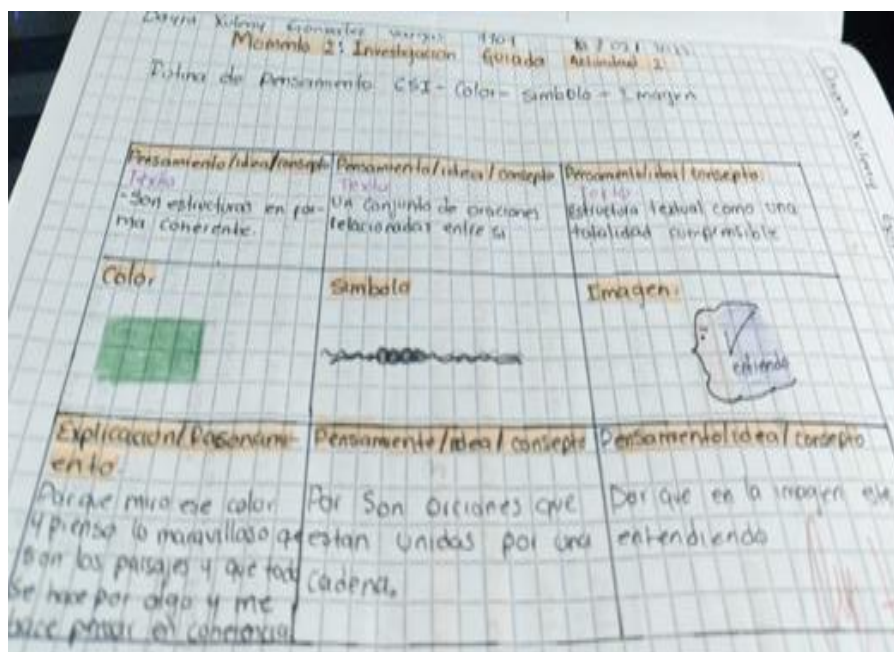 Momento 2: Investigacion Guiada Actividad 2
Rutina de Pensamiento CSI - Color - simbolo - Imagen
Pensamiento/idea/consepto
Texto
-Son estructuras en for-
ma coherente.
Pensamiento/idea/consepto
Texto
Un conjunto de oraciones
relacionadas entre si
Pensamiento/idea/consepto:
Texto
Estructura textual como una
totalidad comprensible
Color
Simbolo
Imagen:
entiendo
Explicacion/Rasonami-
ento
Porque miro ese color
y pienso lo maravilloso qe
son los paisajes y que todo
se hace por algo y me
hace pensar en
Pensamiento/idea/consepto
Por Son orciones que
estan unidas por una
cadena.
Pensamiento/idea/consepto
Por que en la imagen
entendiendo